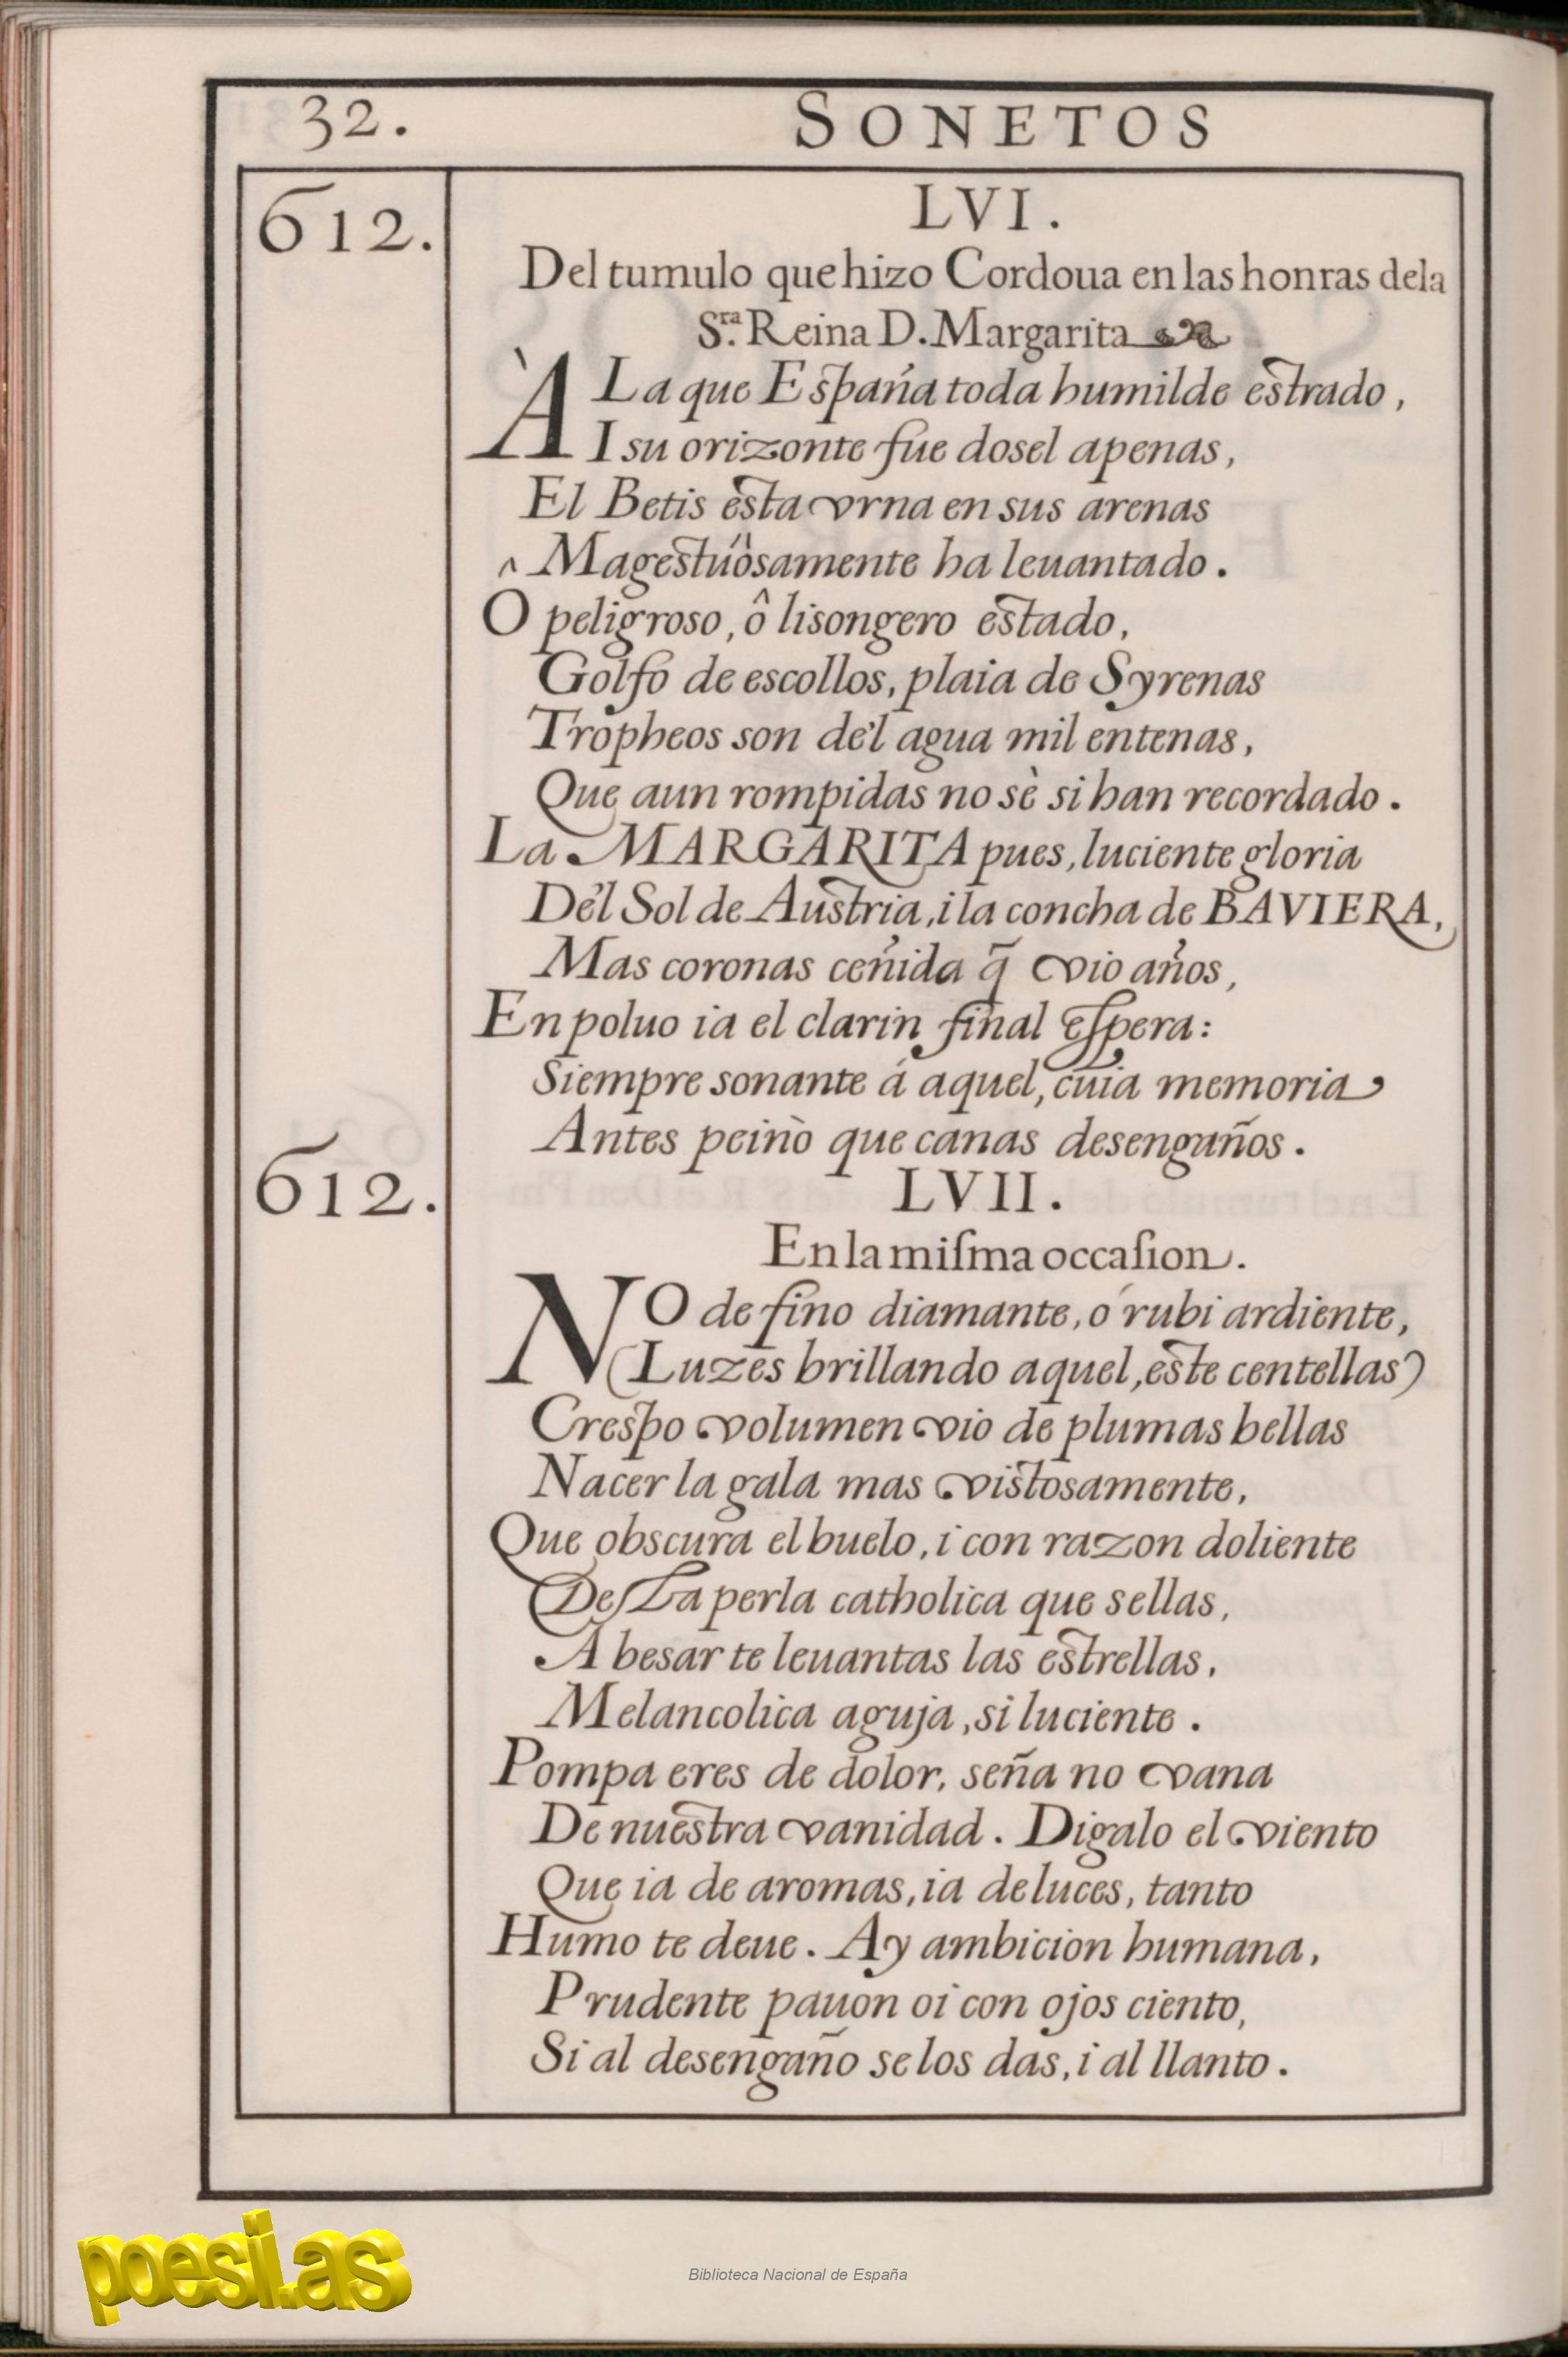 32. SONETOS
612. LVI.
Del tumulo que hizo Cordoua en las honras dela
S.ra Reina D. Margarita
À La que España toda humilde estrado,
I su orizonte fue dosel apenas,
El Betis esta vrna en sus arenas
Magestüosamente ha leuantado.
Ô peligroso, ô lisongero estado,
Golfo de escollos, plaia de Syrenas
Tropheos son de'l agua mil entenas,
Que aun rompidas no sè si han recordado.
La MARGARITA pues, luciente gloria
De'l Sol de Austria, i la concha de BAVIERA,
Mas coronas ceñida q̃ vio años,
En poluo ia el clarin final espera:
Siempre sonante á aquel, cuia memoria
Antes peinò que canas desengaños.
612. LVII.
En la miſma occaſion.
NO de fino diamante, ó rubi ardiente,
(Luzes brillando aquel, este centellas)
Crespo volumen vio de plumas bellas
Nacer la gala mas vistosamente,
Que obscura el buelo, i con razon doliente
De sta perla catholica que sellas,
À besar te leuantas las estrellas,
Melancolica aguja, si luciente.
Pompa eres de dolor, seña no vana
De nuestra vanidad. Digalo el viento
Que ia de aromas, ia de luces, tanto
Humo te deue. Ay ambicion humana,
Prudente pauon oi con ojos ciento,
Si al desengaño se los das, i al llanto.
poesi.as
Biblioteca Nacional de España